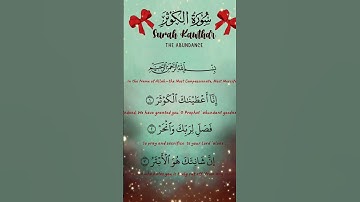 سُورَةُ الكَوْثَرِ
Surah Kauthar
THE ABUNDANCE
بِسْمِ اللَّهِ الرَّحْمَٰنِ الرَّحِيمِ
In the Name of Allah—the Most Compassionate, Most Merciful
إِنَّآ أَعْطَيْنَٰكَ ٱلْكَوْثَرَ ١
We have granted you O Prophet abundant
فَصَلِّ لِرَبِّكَ وَٱنْحَرْ ٢
So pray and sacrifice to your Lord alone
إِنَّ شَانِئَكَ هُوَ ٱلْأَبْتَرُ ٣